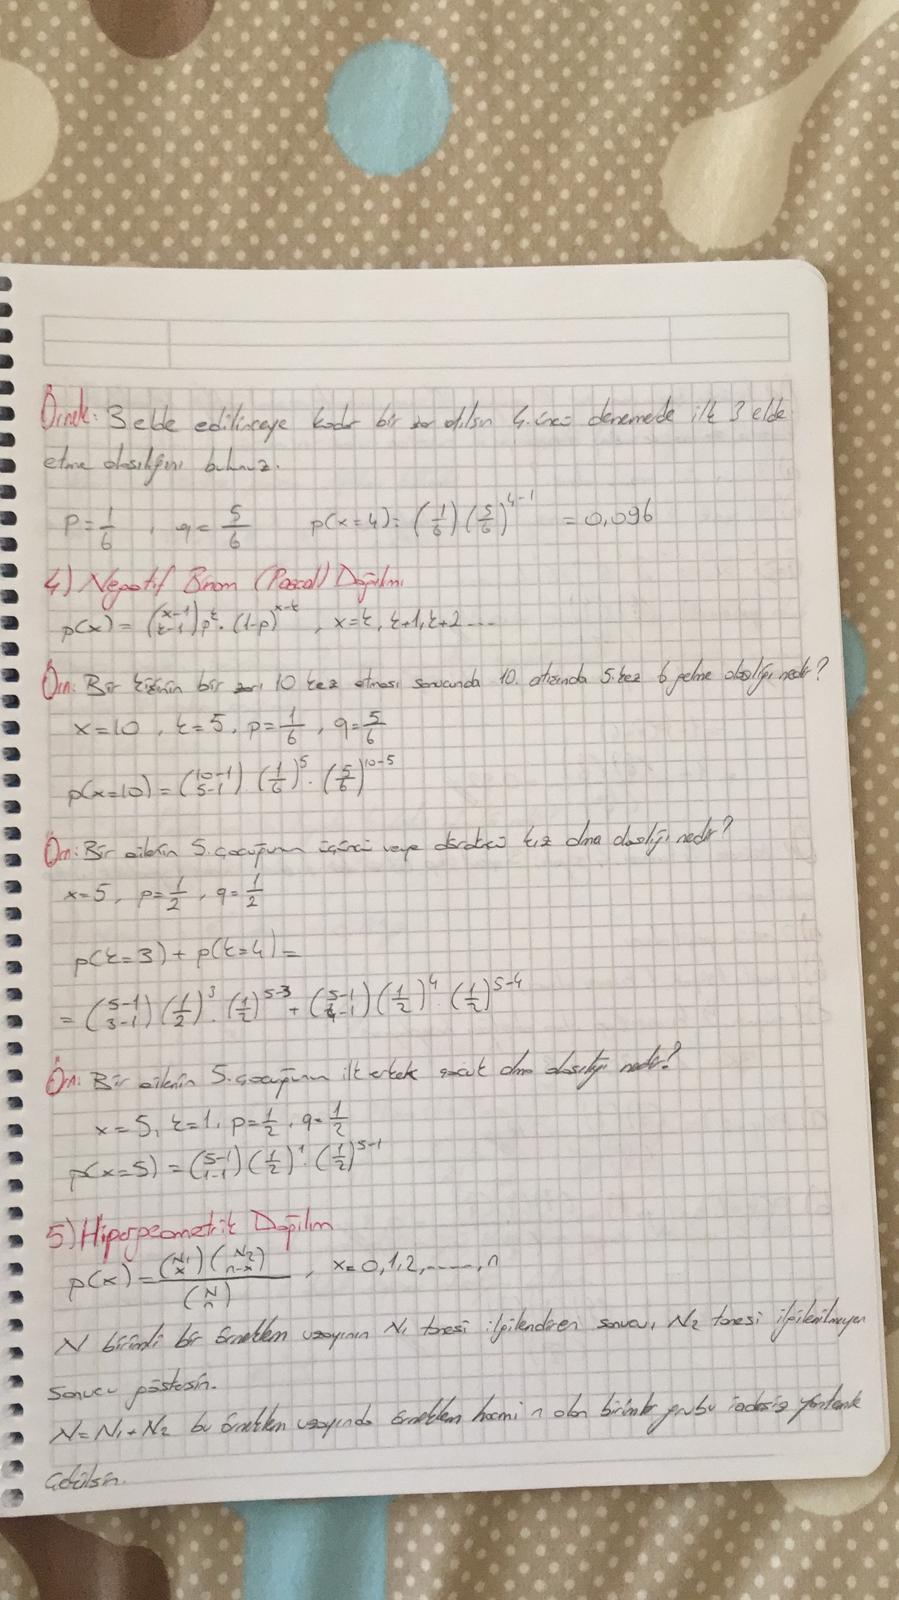 Örnek: 3 elde edilinceye kadar bir zar atılsın 4. üncü denemede ilk 3 elde
etme olasılığını bulunuz.
p=1/6 , q=5/6 p(x=4)=(1/6)(5/6)^4-1 =0,096
4) Negatif Binom (Pascal) Dağılımı
p(x) = (x-1 k-1) p^k . (1-p)^x-k , x=k, k+1, k+2 ....
Örn: Bir kişinin bir zarı 10 kez atması sonucunda 10. atışında 5. kez 6 gelme olasılığı nedir?
x=10 , k=5 , p=1/6 , q=5/6
p(x=10) = (10-1 5-1) . (1/6)^5 . (5/6)^10-5
Örn: Bir ailenin 5. çocuğunun üçüncü veya dördüncü kız olma olasılığı nedir?
x=5 , p=1/2 , q=1/2
p(k=3) + p(k=4) =
= (5-1 3-1) (1/2)^3 . (1/2)^5-3 + (5-1 4-1) (1/2)^4 . (1/2)^5-4
Örn: Bir ailenin 5. çocuğunun ilk erkek çocuk olma olasılığı nedir?
x=5, k=1, p=1/2 , q=1/2
p(x=5) = (5-1 1-1) (1/2)^1 . (1/2)^5-1
5) Hipergeometrik Dağılım
p(x) = (N1 x) (N2 n-x) / (N n) , x=0,1,2,......,n
N birimli bir örneklem uzayının N1 tanesi ilgilendiren sonucu, N2 tanesi ilgilenilmeyen
sonucu göstersin.
N=N1+N2 bu örneklem uzayında örneklem hacmi n olan birimler grubu iadesiz yöntemle
çekilsin.